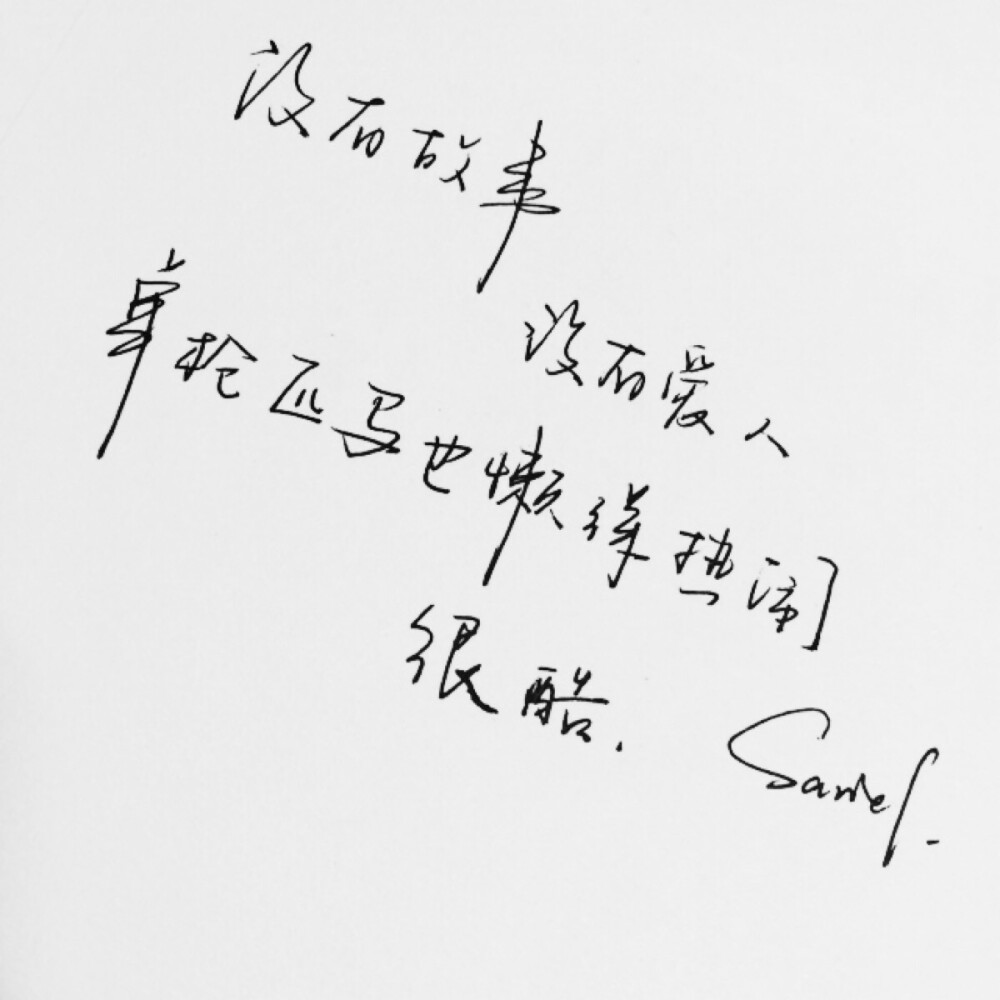 没有故事
没有爱人
单枪匹马也懒得热闹
很酷.
Samel.